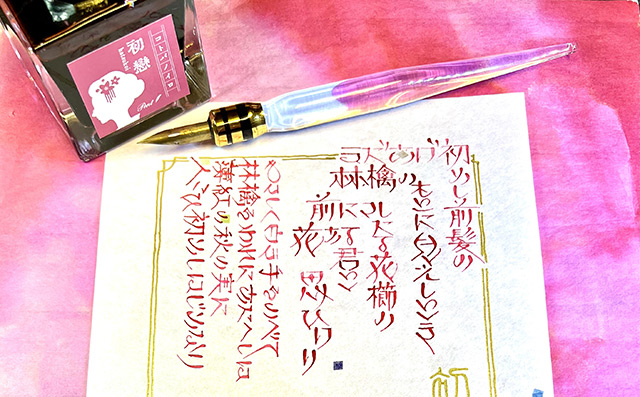 コトバノイロ
初戀
まだあげ
初めし前髪の
林檎の
もとに見えしとき
前に
さしたる花櫛の
花
ある君と
思ひけり
やさしく白き手をのべて
林檎をわれにあたへしは
薄紅の秋の実に
人こひ初めしはじめなり